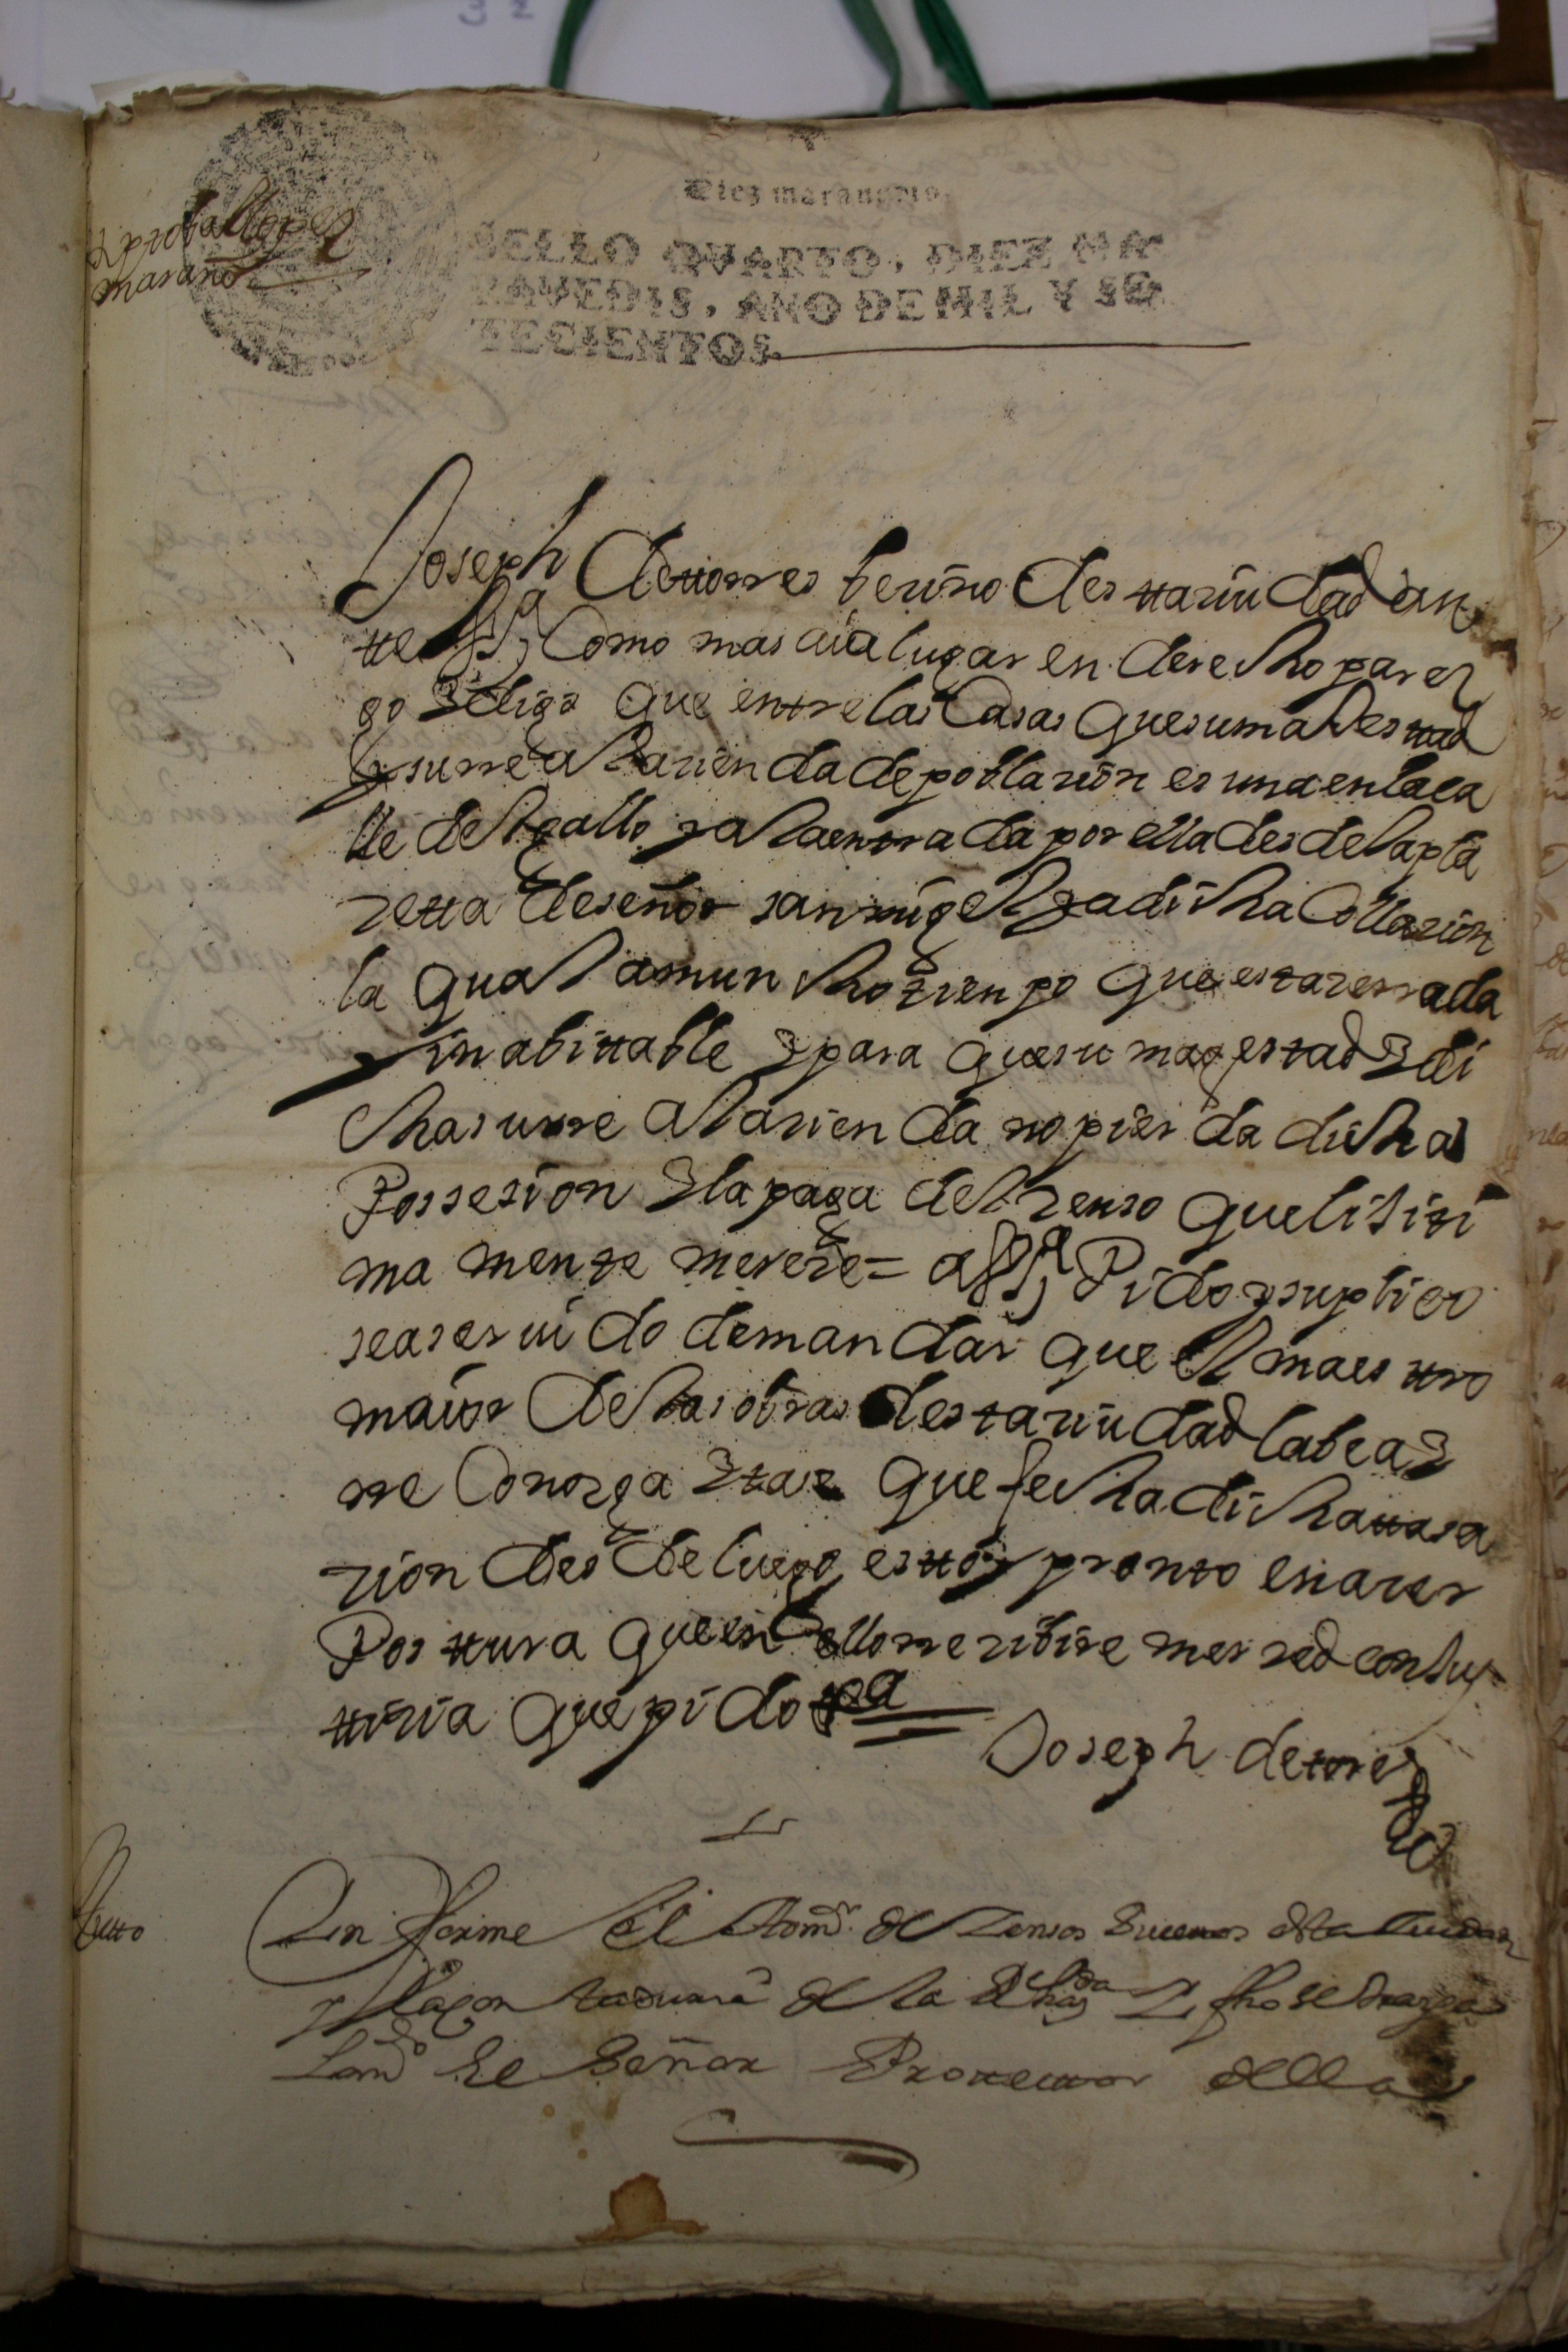 Diez marauedis
SELLO QVARTO, DIEZ MA
RAVEDIS, AÑO DE MIL Y SE
TECIENTOS
marano
Joseph de ttorres beçino des tta ciudad an
tte VSª Como mas aia lugar en derecho parez
go y digo que entre las Casas que su magestad
y su rreal hacienda de poblacion es una en la ca
lle del gallo y a la entrada por ella desde la pla
zetta de señor san migel y a dicha Collacion
la qual a muncho tienpo que esta cerrada
inabittable y para que su magestad y di
cha su rre al hacienda no pierda dicha
Possesion y la paga del zenso que lisiti
ma mente merece = a VSª Pido y suplico
sea seruido de mandar que el maesttro
maior de las obras desta ciudad la bea y
rre Conozga y tase que fecha dicha ttasa
zion des de luego esttoy pronto en acer
Posttura que en ello rrecibire merzed con jus
ttizia que pido Vª
Joseph de torres
Autto
Ynforme el de Zensos de esta Ciudad
y la Contaduria de la Rl hazda y fho se traiga
el Señor della